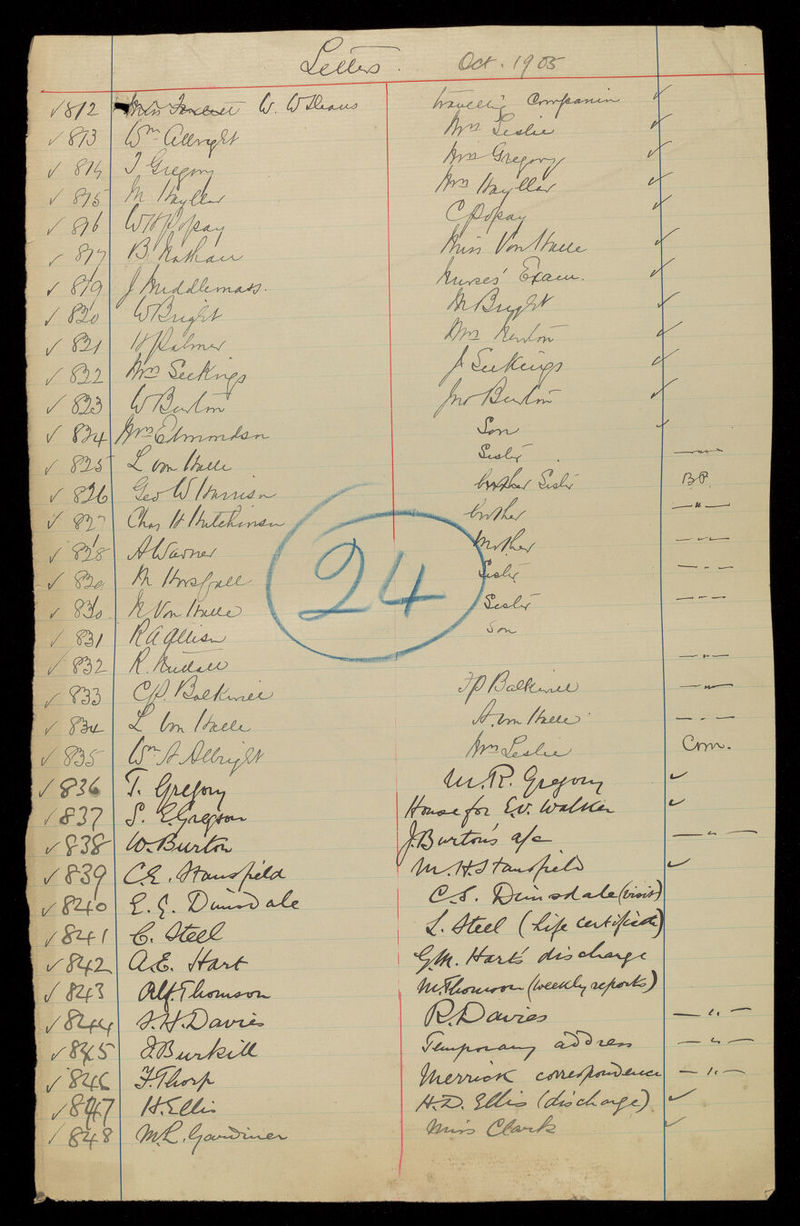 Letters. Oct. 1905
✓812 W. W. travelling Companion ✓
✓813 Wm Allright Mrs Leslie ✓
✓814 T Gregory Mrs Gregory ✓
✓815 M Hayllar Mrs Hayllar ✓
✓816 W H Popay C Popay ✓
✓817 B Nathan Miss Von Halle ✓
✓819 J Middlemass. Nurses' Exam. ✓
✓820 W Bright M Bright ✓
✓821 H Palmer Mrs ✓
✓822 Mrs Seekings J Seekings ✓
✓823 W Burton Jno Burton ✓
✓824 Mrs Edmondson Son ✓
✓825 L von Halle Sister — " —
✓826 Geo W Harrison brother Sister BP.
✓827 Chas H Hutchinson brother — " —
✓828 A Warner Mother — " —
✓829 M Horsfall Sister — " —
✓830 K Von Halle Sister — " —
24
✓831 R A Allison Son
✓832 R. — " —
✓833 C P. Balkwill F P Balkwill — " —
✓834 L Von Halle A. von Halle — " —
✓835 Wm A Albright Mrs Leslie Com.
✓836 T. Gregory M. R. Gregory ✓
✓837 S. E. Gregson House for E.V. Walker ✓
✓838 W. Burton J. Burton's a/c — " —
✓839 C.E. Stansfield M. H. Stansfield ✓
✓840 E. E. Dimsdale C. S. Dimsdale (visit)
✓841 C. Steel L. Steel (Life certificate)
✓842 A.E. Hart G.M. Hart's discharge
✓843 Alf. Thomson M. Thomson (weekly reports)
✓844 S. H. Davies R. Davies — " —
✓845 J. Burkill Temporary address — " —
✓846 F. Thorp Merrick correspondence — " —
✓847 H. Ellis H. D. Ellis (discharge) ✓
✓848 M. L. Gardiner Miss Clark ✓